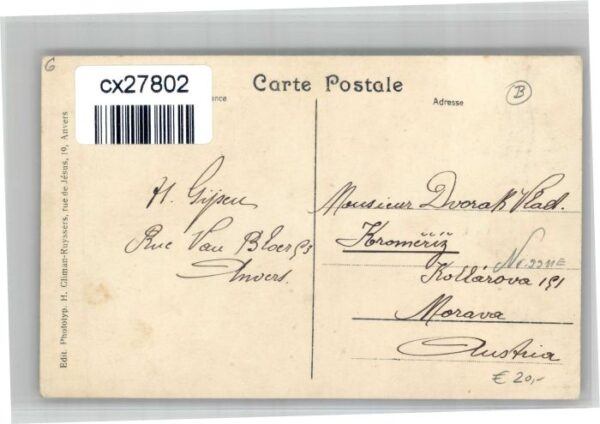 6
cx27802
Carte Postale
ance
Adresse
B
Edit. Phototyp. H. Climan-Ruyssers, rue de Jésus, 19, Anvers
H. Gijsen
Rue Van Bloer 53
Anvers.
Monsieur Dvorak Vlad.
Kroměříž
Kollárova 151
Morava
Austria
€ 20,-